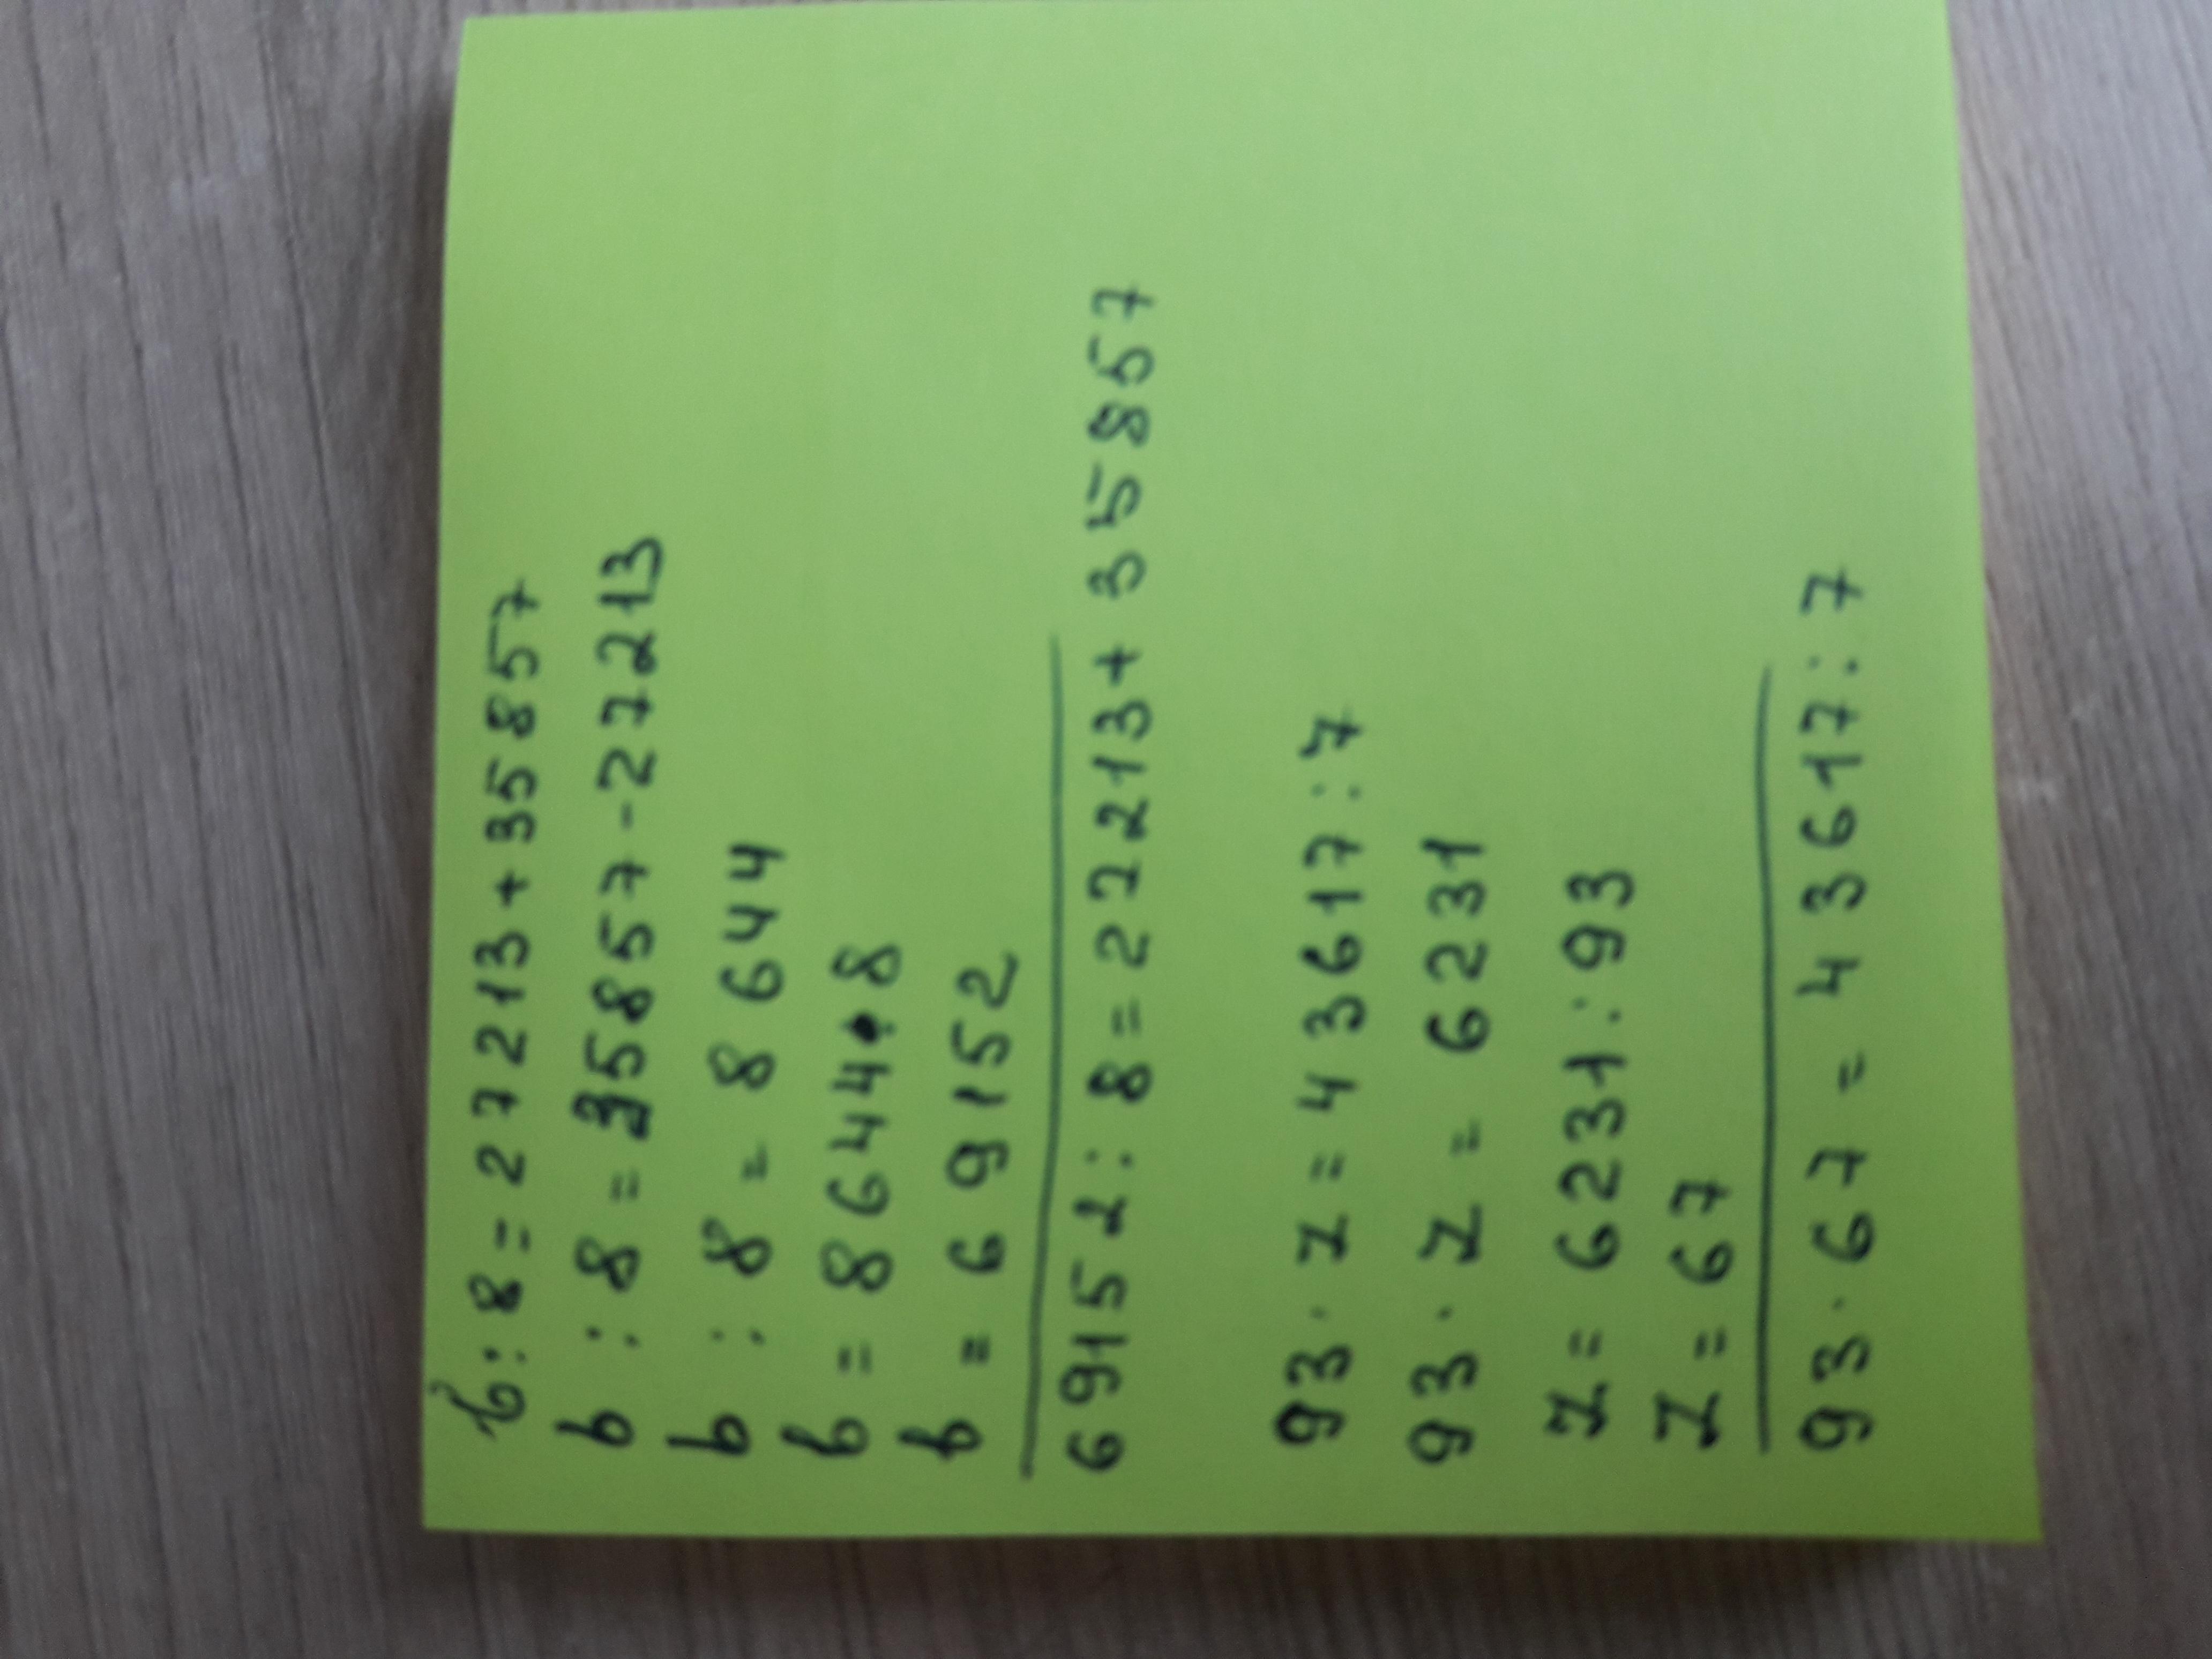 b : 8 = 27213 + 35857
b : 8 = 35857 - 27213
b : 8 = 8644
b = 8644 · 8
b = 69152
69152 : 8 = 22213 + 35857
93 · z = 43617 : 7
93 · z = 6231
z = 6231 : 93
z = 67
93 · 67 = 43617 : 7